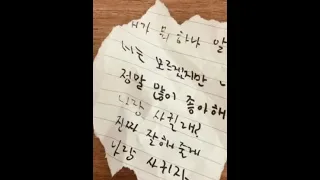 내가 뭐 하나 알
너는 모르겠지만 너
정말 많이 좋아해
나랑 사귈래?
진짜 잘해줄게
나랑 사귀자